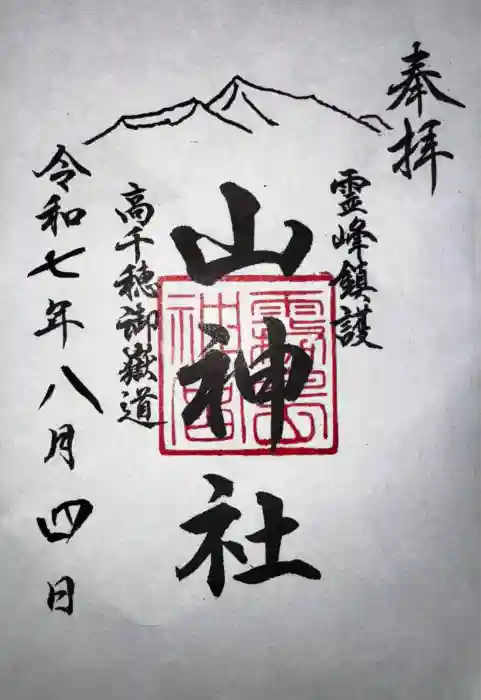 奉拝
霊峰鎮護
山神社
霧島神宮
高千穂御嶽道
令和七年八月四日